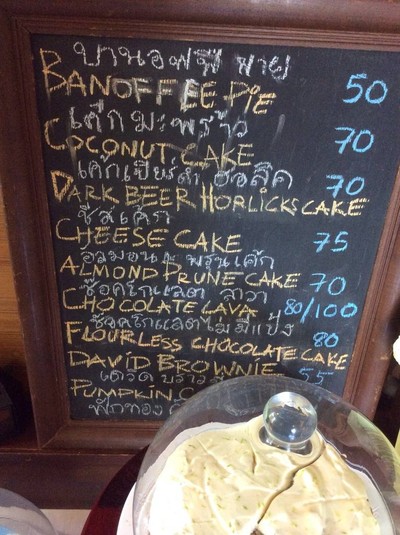 บานอฟฟี่ พาย
BANOFFEE PIE 50
เค้กมะพร้าว
COCONUT CAKE 70
เค้กเบียร์ดำ ฮอลิค 70
DARK BEER HORLICKS CAKE
ชีสเค้ก
CHEESE CAKE 75
อัลมอนด์ พรุนเค้ก
ALMOND PRUNE CAKE 70
ช็อคโกแลต ลาวา
CHOCOLATE LAVA 80/100
ช็อคโกแลตไม่มีแป้ง 80
FLOURLESS CHOCOLATE CAKE
DAVID BROWNIE 55
เดวิด
PUMPKIN
ฟักทอง